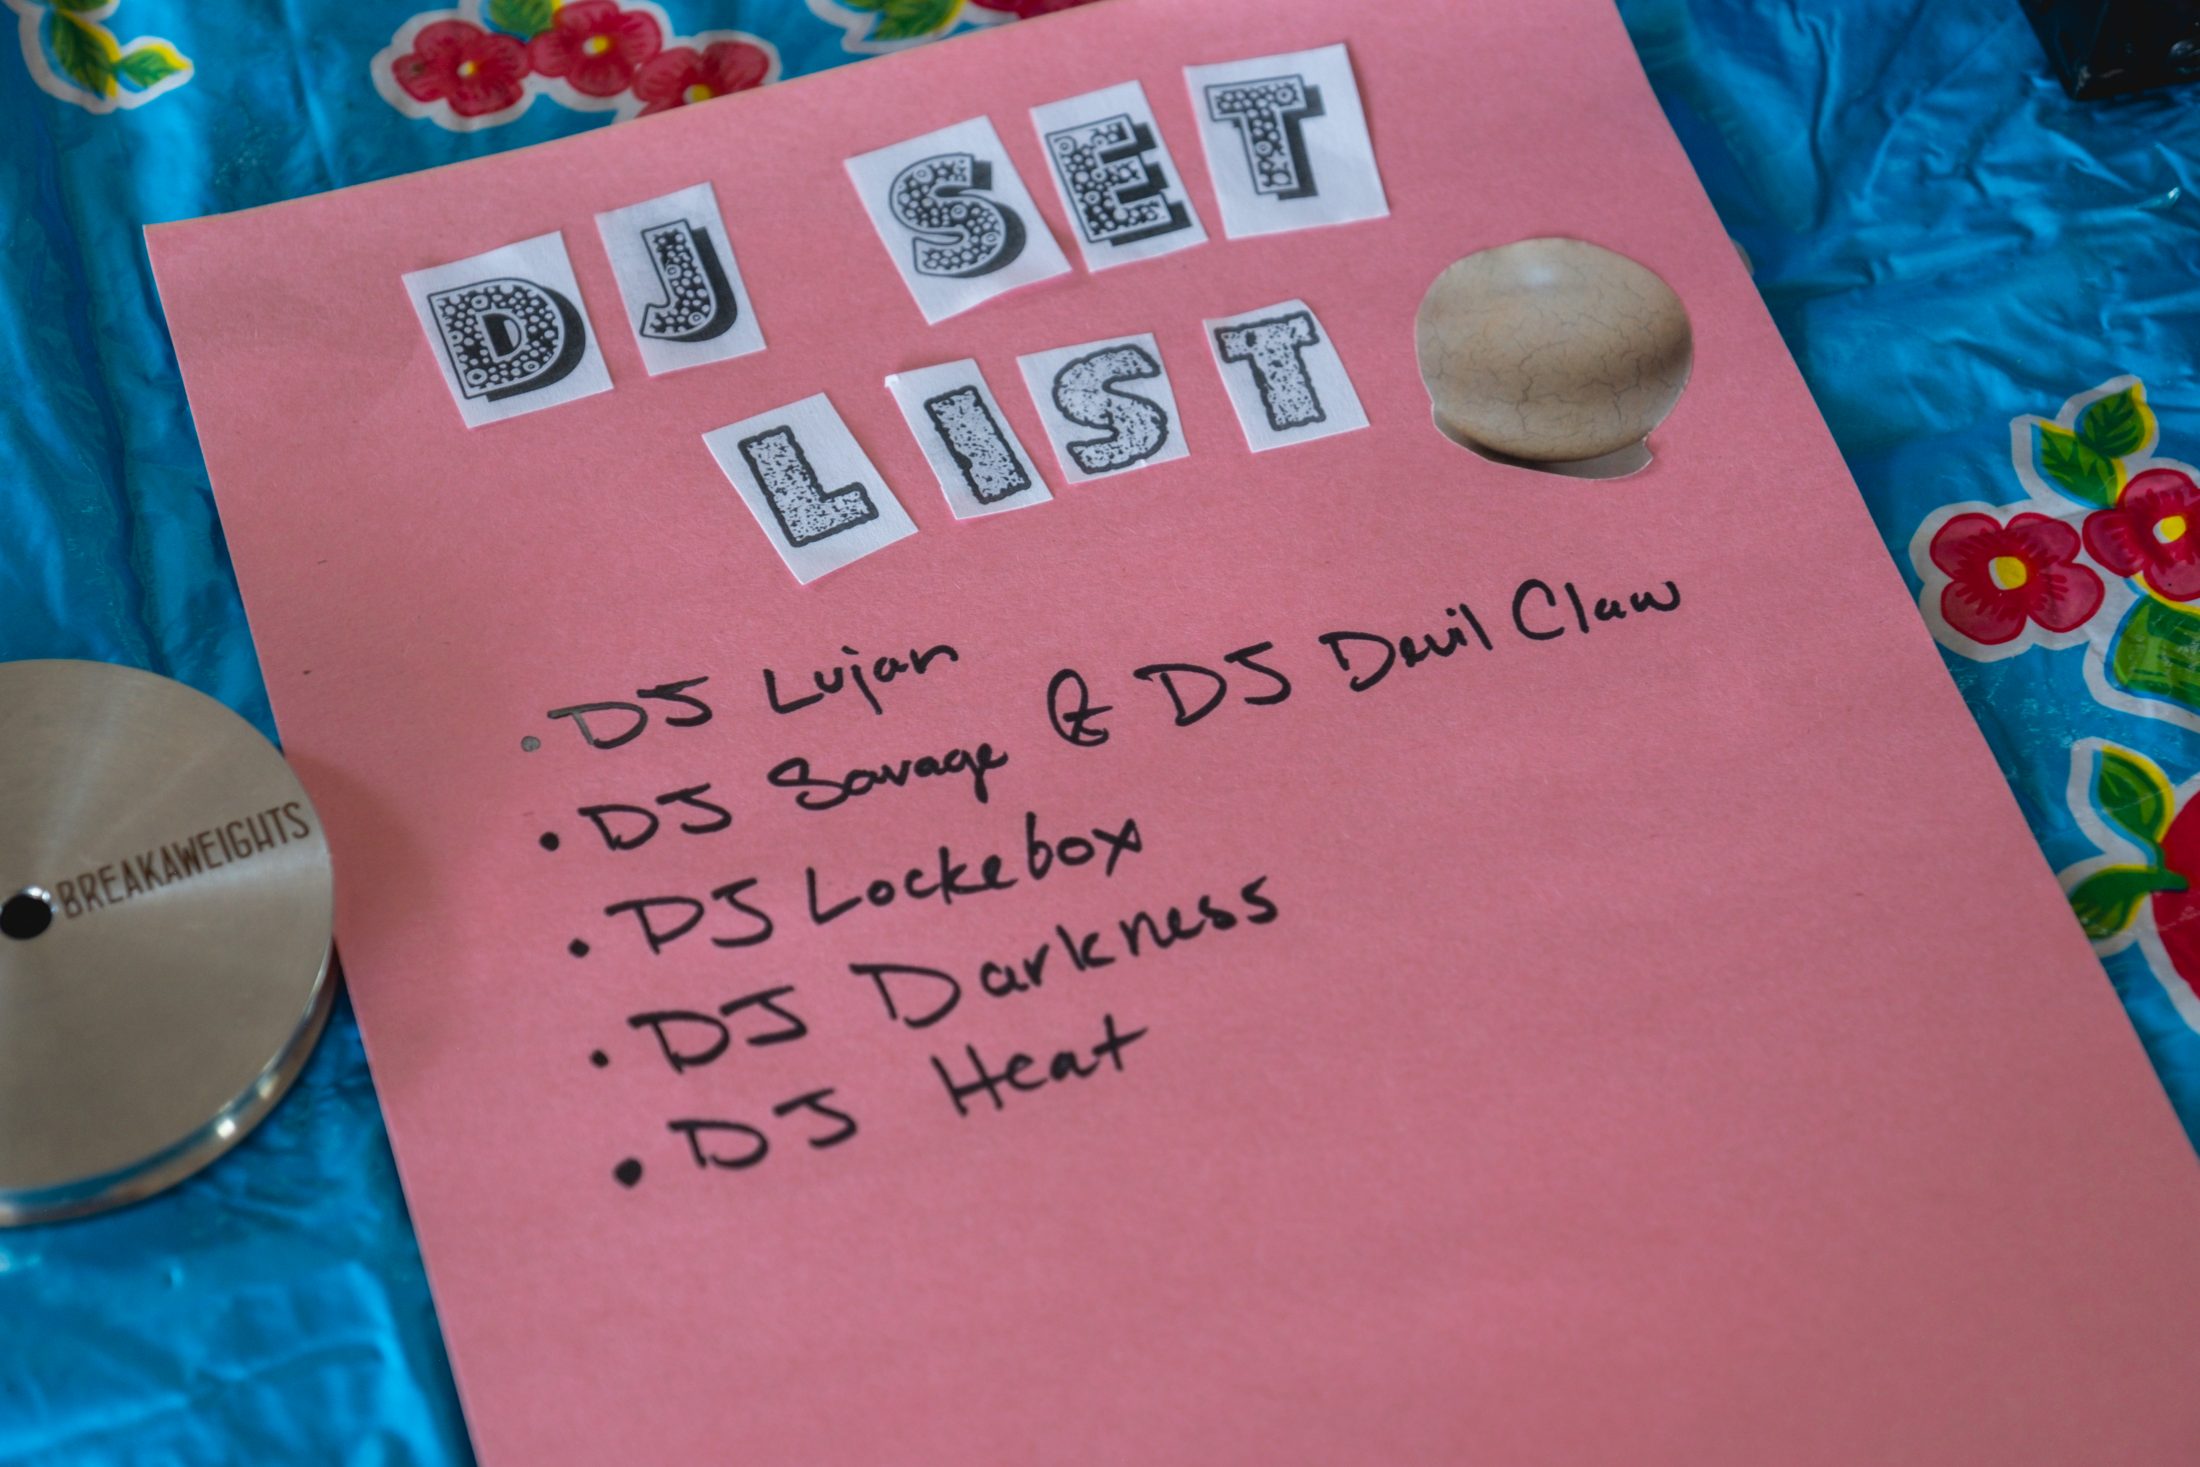 DJ SET
LIST
• DJ Lujan
• DJ Savage & DJ Devil Claw
• DJ Lockebox
• DJ Darkness
• DJ Heat
BREAKAWEIGHTS